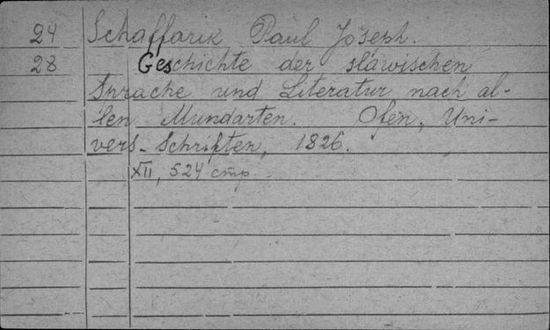 24 Schaffarik Paul Joseph.
28 Geschichte der slawischen
Sprache und Literatur nach al-
len Mundarten. Ofen, Uni-
vers-Schriften, 1826.
XII, 524 стр.